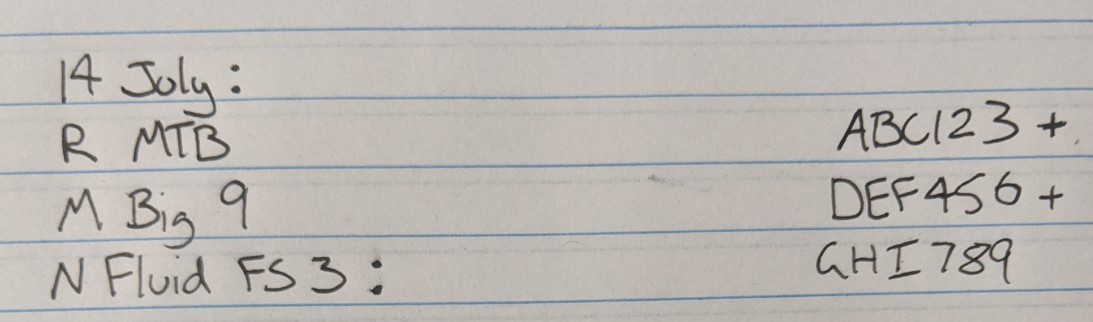 14 July:
R MTB ABC123 +
M Big 9 DEF456 +
N Fluid FS 3: GHI789